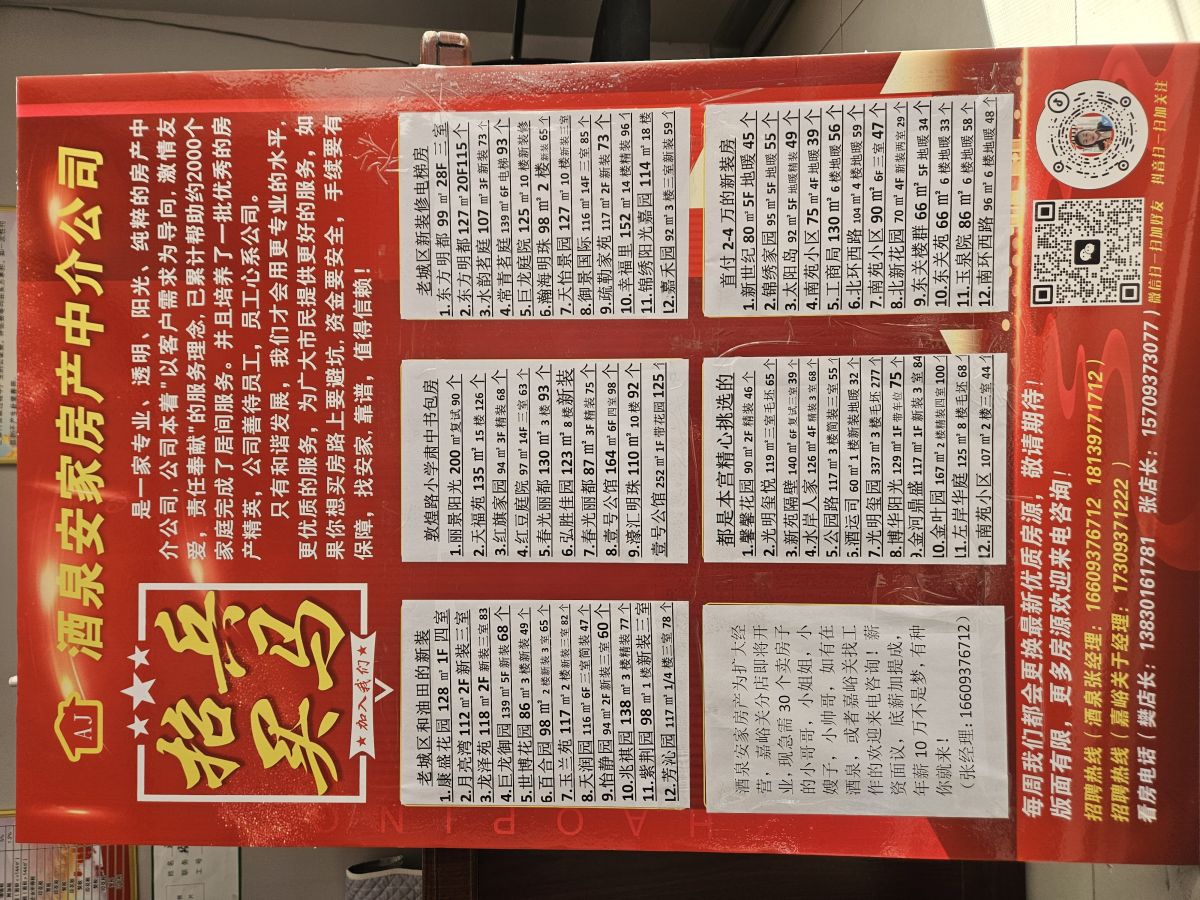 AJ
酒泉安家房产中介公司
招兵
买马
加入我们
是一家专业、透明、阳光、纯粹的房产中
介公司,公司本着"以客户需求为导向,激情友
爱,责任奉献"的服务理念,已累计帮助约2000个
家庭完成了居间服务。并且培养了一批优秀的房
产精英,公司善待员工,员工心系公司。
只有和谐发展,我们才会用更专业的水平,
更优质的服务,为广大市民提供更好的服务,如
果你想买房路上要避坑,资金要安全,手续要有
保障,找安家,靠谱,值得信赖!
老城区和油田的新装
1.康盛花园 128 ㎡ 1F 四室
2.月亮湾 112 ㎡ 2F 新装三室
3.龙泽苑 118 ㎡ 2F 新装三室 83
4.巨龙御园 139 ㎡ 5F 新装 68 个
5.世博花园 86 ㎡ 3 楼新装 49 个
6.百合园 98 ㎡ 2 楼新装 3 室 65 个
7.玉兰苑 117 ㎡ 2 楼新装三室 82 个
8.天润园 116 ㎡ 6F 三室简装 47 个
9.怡静园 94 ㎡ 2F 新装三室 60 个
10.兆祺园 138 ㎡ 3 楼精装 77 个
11.紫荆园 98 ㎡ 1 楼新装三室
12.芳沁园 117 ㎡ 1/4 楼三室 78 个
敦煌路小学肃中书包房
1.丽景阳光 200 ㎡复式 90 个
2.天福苑 135 ㎡ 15 楼 126 个
3.红旗家园 94 ㎡ 3F 精装 68 个
4.红豆庭院 97 ㎡ 14F 二室 63 个
5.春光丽都 130 ㎡ 3 楼 93 个
6.弘胜佳园 123 ㎡ 8 楼新装
7.春光丽都 87 ㎡ 3F 精装 75 个
8.壹号公馆 164 ㎡ 6F 四室 98 个
9.濠汇明珠 110 ㎡ 10 楼 92 个
壹号公馆 252 ㎡ 1F 带花园 125 个
老城区新装修电梯房
1.东方明都 99 ㎡ 28F 三室
2.东方明都 127 ㎡ 20F115 个
3.水韵茗庭 107 ㎡ 3F 新装 73 个
4.常青茗庭 139 ㎡ 6F 电梯 93 个
5.巨龙庭院 125 ㎡ 10 楼新装修
6.瀚海明珠 98 ㎡ 2 楼新装 65 个
7.天怡景园 127 ㎡ 10 楼新装三室
8.御景国际 116 ㎡ 14F 三室 85 个
9.疏勒家苑 117 ㎡ 2F 新装 73 个
10.幸福里 152 ㎡ 14 楼精装 96 个
11.锦绣阳光嘉园 114 ㎡ 18 楼
12.嘉天园 92 ㎡ 3 楼三室新装 59 个
酒泉安家房产为扩大经
营,嘉峪关分店即将开
业,现急需 30 个卖房子
的小哥哥,小姐姐,小
嫂子,小帅哥,如有在
酒泉,或者嘉峪关找工
作的欢迎来电咨询!薪
资面议,底薪加提成,
年薪 10 万不是梦,有种
你就来!
(张经理:16609376712)
都是本宫精心挑选的
1.馨馨花园 90 ㎡ 2F 精装 46 个
2.光明玺悦 119 ㎡三室毛坯 65 个
3.新苑隔壁 140 ㎡ 6F 复式三室 39 个
4.水岸人家 126 ㎡ 4F 精装 3 室 68 个
5.公园路 117 ㎡ 3 楼简装三室 55 个
6.酒运司 60 ㎡ 1 楼新装地暖 32 个
7.光明玺园 337 ㎡ 3 楼毛坯 277 个
8.博华阳光 129 ㎡ 1F 带车位 75 个
9.金河鼎盛 117 ㎡ 1F 新装 3 室 84
10.金叶园 167 ㎡ 2 楼精装四室 100 个
11.左岸华庭 125 ㎡ 8 楼毛坯 68 个
12.南苑小区 107 ㎡ 2 楼三室 44 个
首付 2-4 万的新装房
1.新世纪 80 ㎡ 5F 地暖 45 个
2.锦绣家园 95 ㎡ 5F 地暖 55 个
3.太阳岛 92 ㎡ 5F 地暖精装 49 个
4.南苑小区 75 ㎡ 4F 地暖 39 个
5.工商局 130 ㎡ 6 楼地暖 56 个
6.北环西路 104 ㎡ 4 楼地暖 59 个
7.南苑小区 90 ㎡ 6F 三室 47 个
8.北新花园 70 ㎡ 4F 新装两室 29 个
9.东关楼群 66 ㎡ 5F 地暖 34 个
10.东关苑 66 ㎡ 6 楼地暖 33 个
11.玉泉院 86 ㎡ 6 楼地暖 58 个
12.南环西路 96 ㎡ 6 楼地暖 48 个
HAOPING
每周我们都会更换最新优质房源,敬请期待!
版面有限,更多房源欢迎来电咨询!
招聘热线(酒泉张经理:16609376712 18139771712)
招聘热线(嘉峪关于经理:17309371222 )
看房电话(樊店长:13830161781 张店长:15709373077)
微信扫一扫加好友 抖音扫一扫加关注